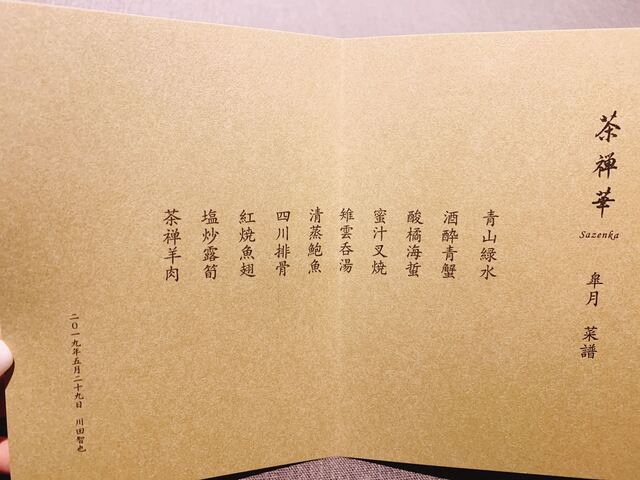 茶禅華
Sazenka
皐月 菜譜
青山緑水
酒酔青蟹
酸橘海蜇
蜜汁叉焼
雉雲呑湯
清蒸鮑魚
四川排骨
紅焼魚翅
塩炒露筍
茶禅羊肉
二〇一九年五月二十九日 川田智也